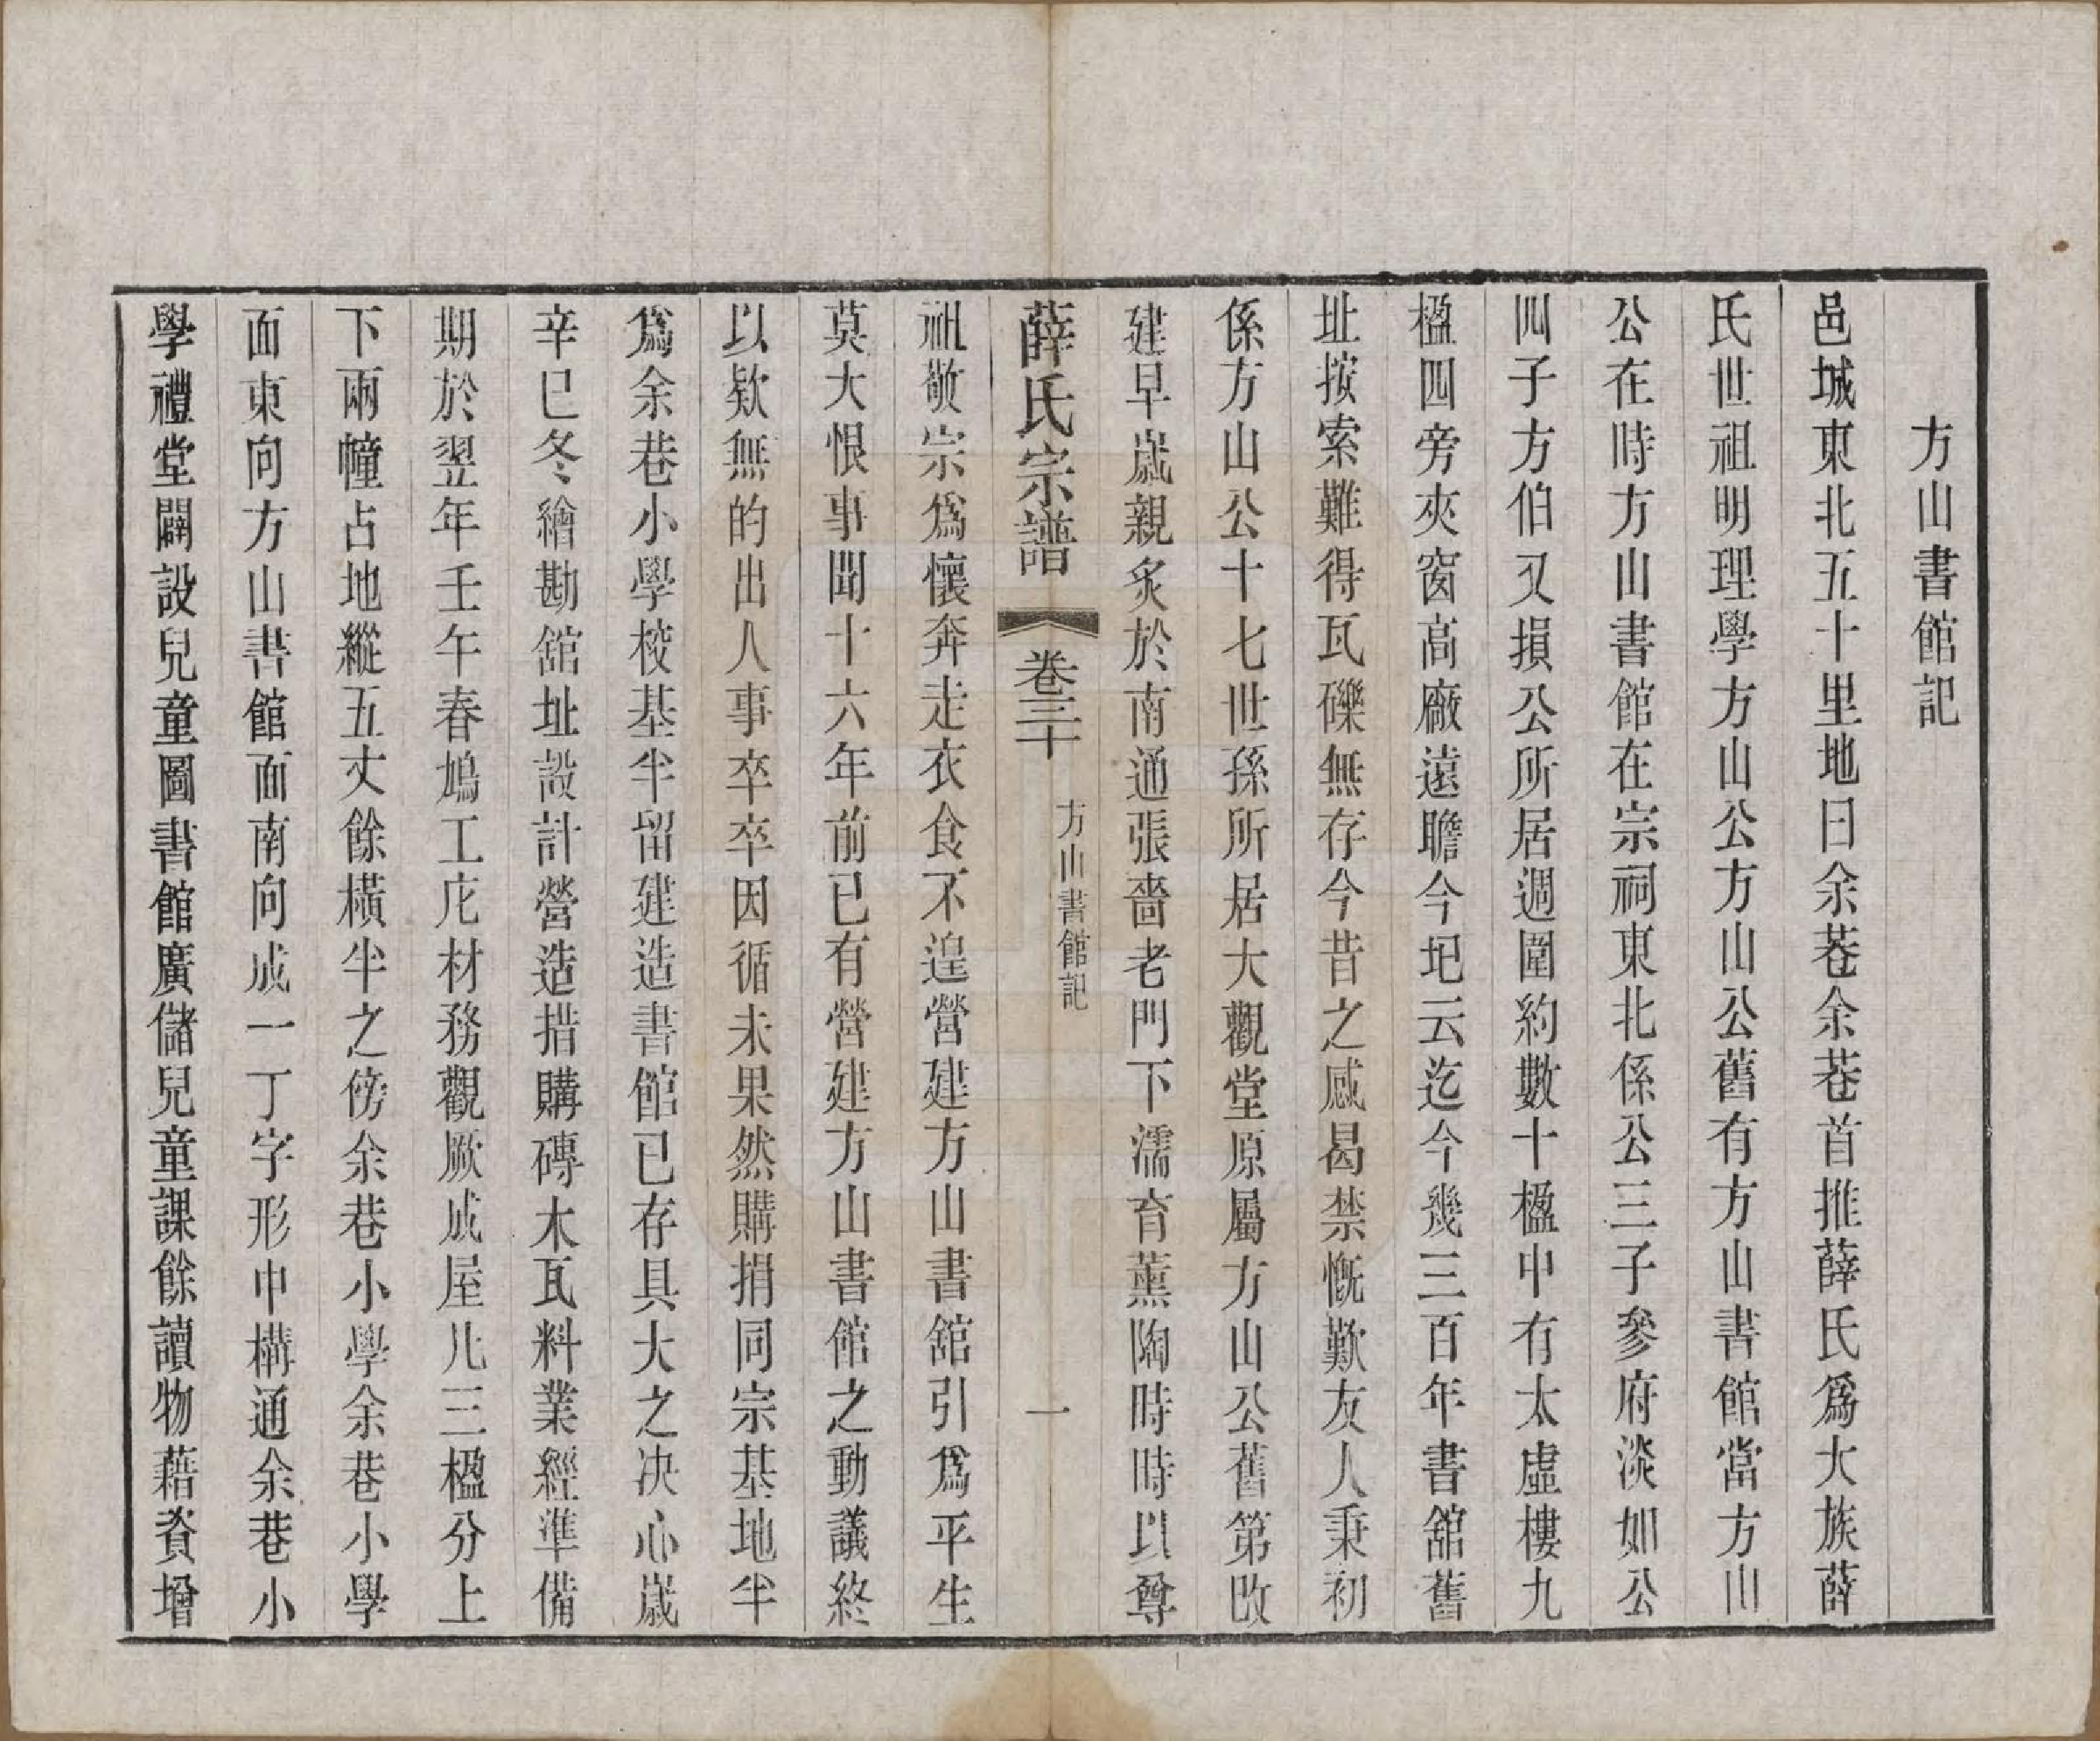 方山書館記
邑城東北五十里地曰余巷余巷首推薛氏爲大族薛
氏世祖明理學方山公方山公舊有方山書館當方山
公在時方山書館在宗祠東北係公三子參府淡如公
四子方伯又損公所居週圍約數十楹中有太虛樓九
楹四旁夾窗高廠遠瞻今圯云迄今幾三百年書舘舊
址按索難得瓦礫無存今昔之感曷禁慨歎友人秉初
係方山公十七世孫所居大觀堂原屬方山公舊第改
建早歲親炙於南通張嗇老門下濡育薰陶時時以尊
薛氏宗譜 卷三十 方山書館記 一
祖敬宗爲懷奔走衣食不遑營建方山書舘引爲平生
莫大恨事聞十六年前已有營建方山書館之動議終
以欵無的出人事卒卒因循未果然購捐同宗基地半
爲余巷小學校基半留建造書館已存具大之决心歲
辛巳冬繪勘舘址設計營造措購磚木瓦料業經準備
期於翌年壬午春鳩工庀材務觀厥成屋凡三楹分上
下兩幢占地縱五丈餘橫半之傍余巷小學余巷小學
面東向方山書館面南向成一丁字形中構通余巷小
學禮堂闢設兒童圖書館廣儲兒童課餘讀物藉資增